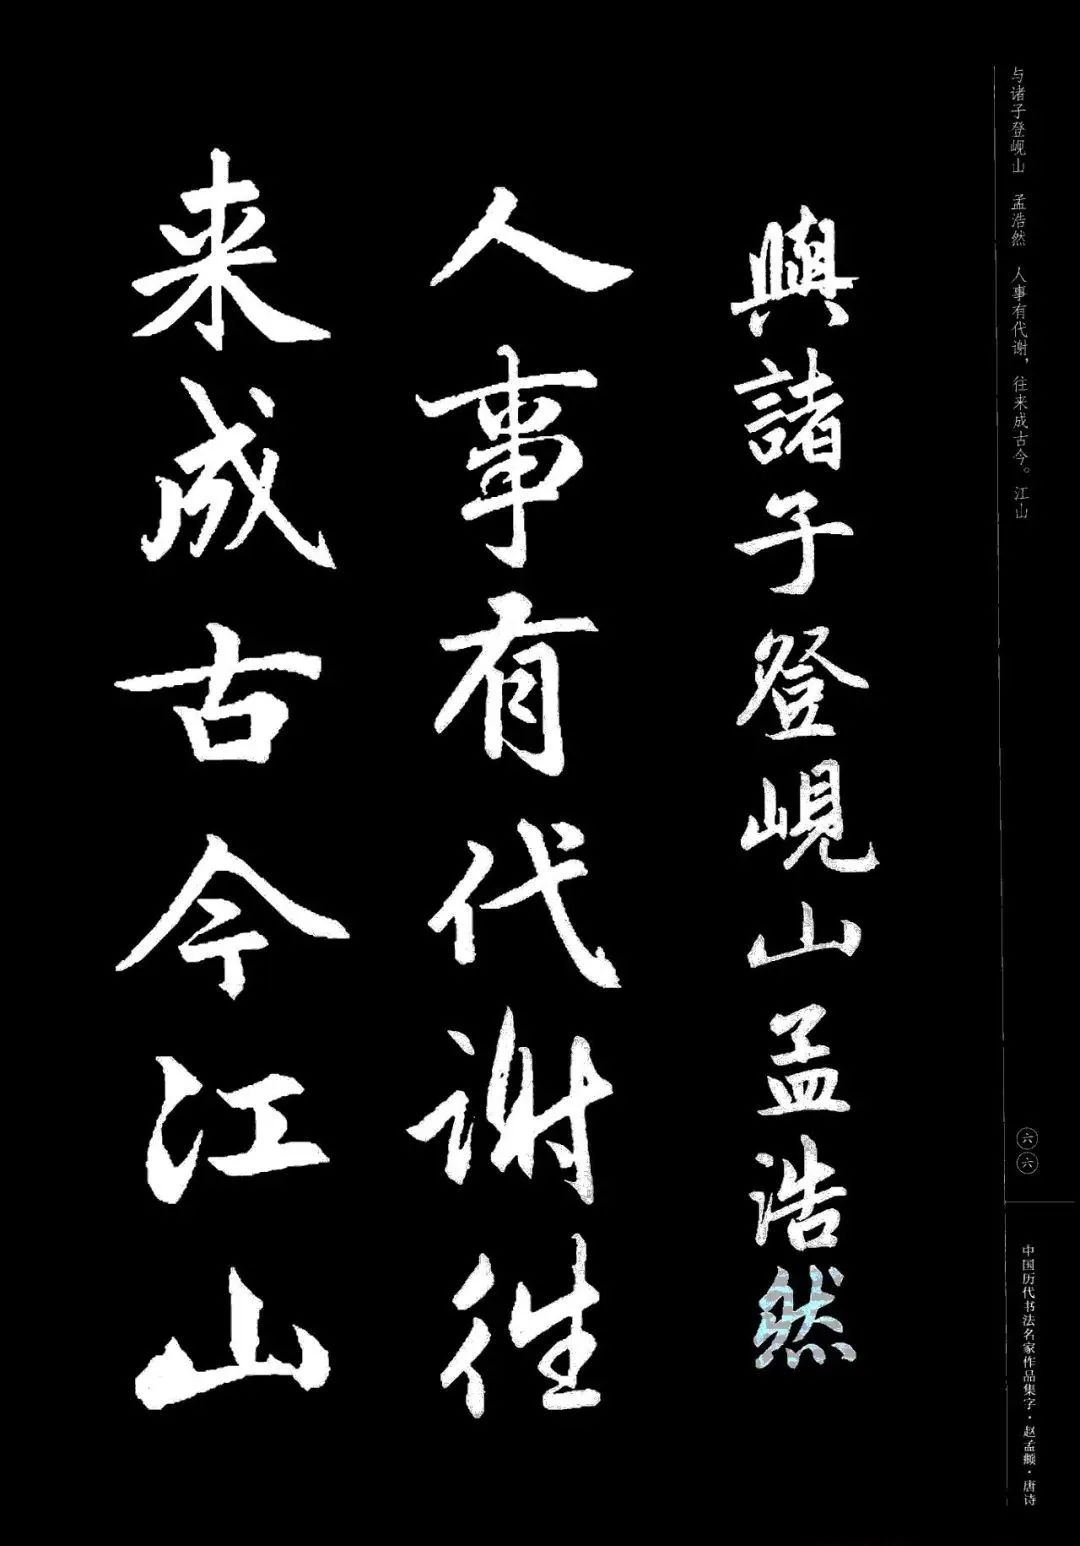 与诸子登岘山 孟浩然 人事有代谢，往来成古今。江山
六六
中国历代书法名家作品集字·赵孟頫·唐诗
與諸子登峴山孟浩然
人事有代谢往
来成古今江山